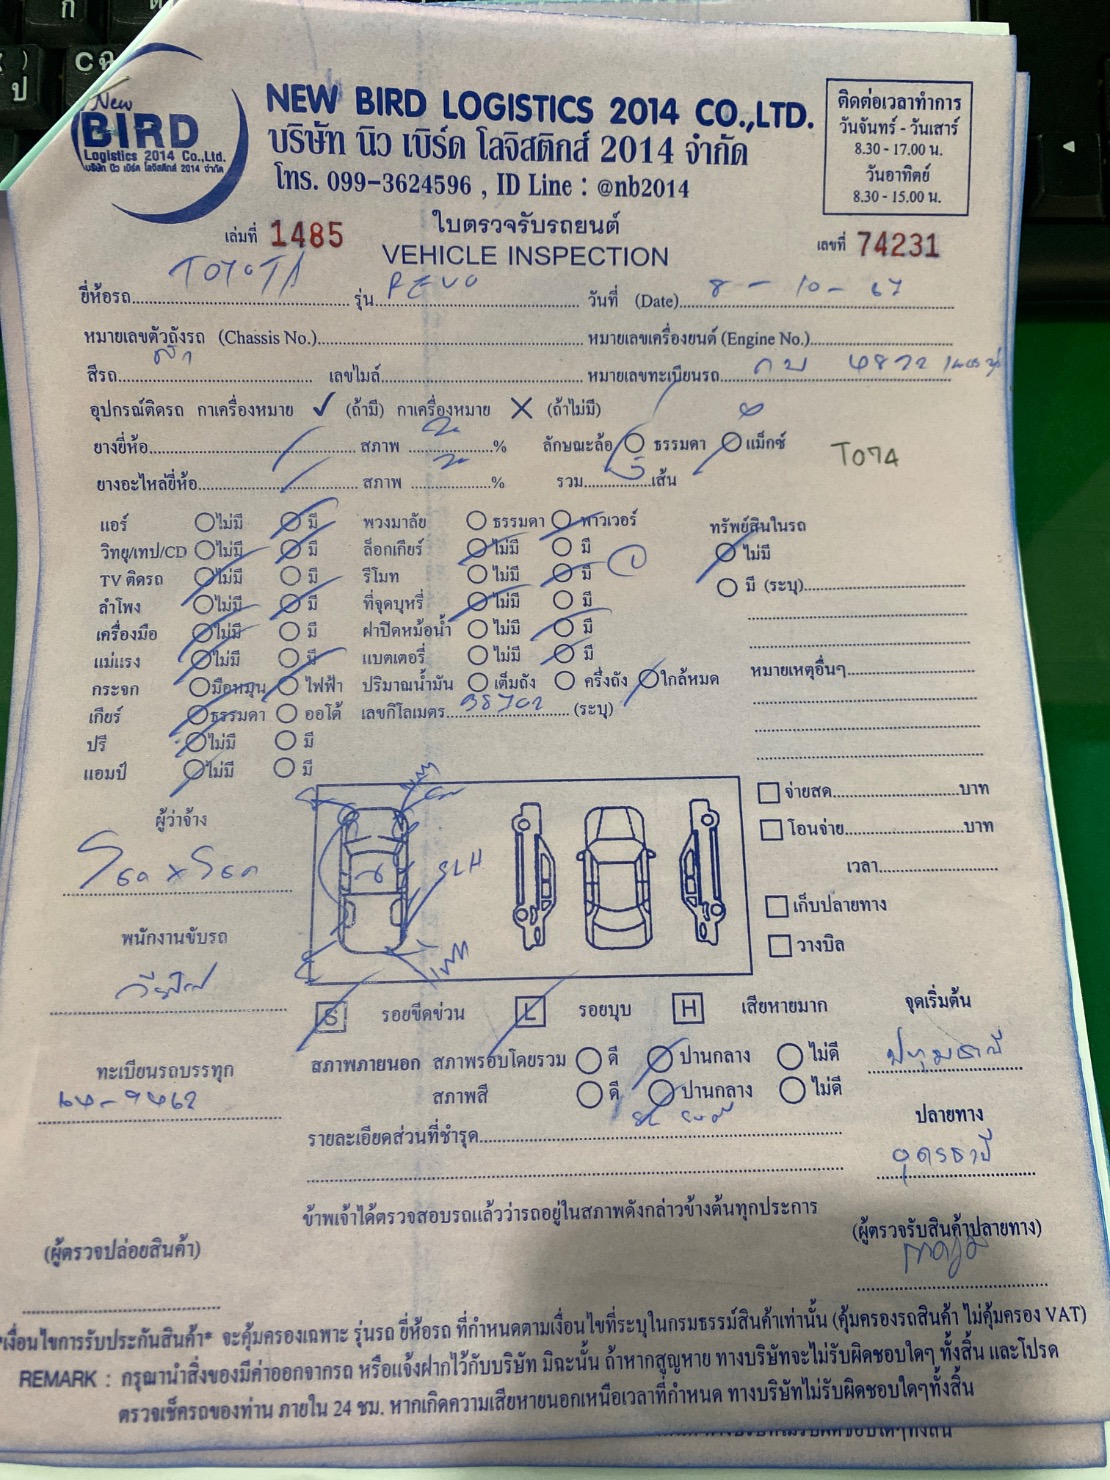 New
BIRD
Logistics 2014 Co.,Ltd.
บริษัท นิว เบิร์ด โลจิสติกส์ 2014 จำกัด
NEW BIRD LOGISTICS 2014 CO.,LTD.
บริษัท นิว เบิร์ด โลจิสติกส์ 2014 จำกัด
โทร. 099-3624596 , ID Line : @nb2014
ติดต่อเวลาทำการ
วันจันทร์ - วันเสาร์
8.30 - 17.00 น.
วันอาทิตย์
8.30 - 15.00 น.
ใบตรวจรับรถยนต์
เล่มที่ 1485
VEHICLE INSPECTION
เลขที่ 74231
ยี่ห้อรถ TOYOTA รุ่น REVO วันที่ (Date) 8 - 10 - 67
หมายเลขตัวถังรถ (Chassis No.) หมายเลขเครื่องยนต์ (Engine No.)
สีรถ เลขไมล์ หมายเลขทะเบียนรถ
อุปกรณ์ติดรถ กาเครื่องหมาย ✓ (ถ้ามี) กาเครื่องหมาย ✕ (ถ้าไม่มี)
ยางยี่ห้อ สภาพ % ลักษณะล้อ ธรรมดา แม็กซ์
ยางอะไหล่ยี่ห้อ สภาพ % รวม 5 เส้น
แอร์ ไม่มี มี พวงมาลัย ธรรมดา พาวเวอร์ ทรัพย์สินในรถ
วิทยุ/เทป/CD ไม่มี มี ล็อกเกียร์ ไม่มี มี ไม่มี
TV ติดรถ ไม่มี มี รีโมท ไม่มี มี มี (ระบุ)
ลำโพง ไม่มี มี ที่จุดบุหรี่ ไม่มี มี
เครื่องมือ ไม่มี มี ฝาปิดหม้อน้ำ ไม่มี มี
แม่แรง ไม่มี มี แบตเตอรี่ ไม่มี มี หมายเหตุอื่นๆ
กระจก มือหมุน ไฟฟ้า ปริมาณน้ำมัน เต็มถัง ครึ่งถัง ใกล้หมด
เกียร์ ธรรมดา ออโต้ เลขกิโลเมตร 38702 (ระบุ)
ปรี ไม่มี มี
แอมป์ ไม่มี มี
จ่ายสด บาท
ผู้ว่าจ้าง
โอนจ่าย บาท
SLH
เวลา
เก็บปลายทาง
พนักงานขับรถ
วางบิล
S รอยขีดข่วน L รอยบุบ H เสียหายมาก จุดเริ่มต้น
สภาพภายนอก สภาพรอบโดยรวม ดี ปานกลาง ไม่ดี ปทุมธานี
ทะเบียนรถบรรทุก
สภาพสี ดี ปานกลาง ไม่ดี
ปลายทาง
รายละเอียดส่วนที่ชำรุด
อุดรธานี
ข้าพเจ้าได้ตรวจสอบรถแล้วว่ารถอยู่ในสภาพดังกล่าวข้างต้นทุกประการ
(ผู้ตรวจปล่อยสินค้า)
(ผู้ตรวจรับสินค้าปลายทาง)
*เงื่อนไขการรับประกันสินค้า* จะคุ้มครองเฉพาะ รุ่นรถ ยี่ห้อรถ ที่กำหนดตามเงื่อนไขที่ระบุในกรมธรรม์สินค้าเท่านั้น (คุ้มครองรถสินค้า ไม่คุ้มครอง VAT)
REMARK : กรุณานำสิ่งของมีค่าออกจากรถ หรือแจ้งฝากไว้กับบริษัท มิฉะนั้น ถ้าหากสูญหาย ทางบริษัทจะไม่รับผิดชอบใดๆ ทั้งสิ้น และโปรด
ตรวจเช็ครถของท่าน ภายใน 24 ชม. หากเกิดความเสียหายนอกเหนือเวลาที่กำหนด ทางบริษัทไม่รับผิดชอบใดๆทั้งสิ้น